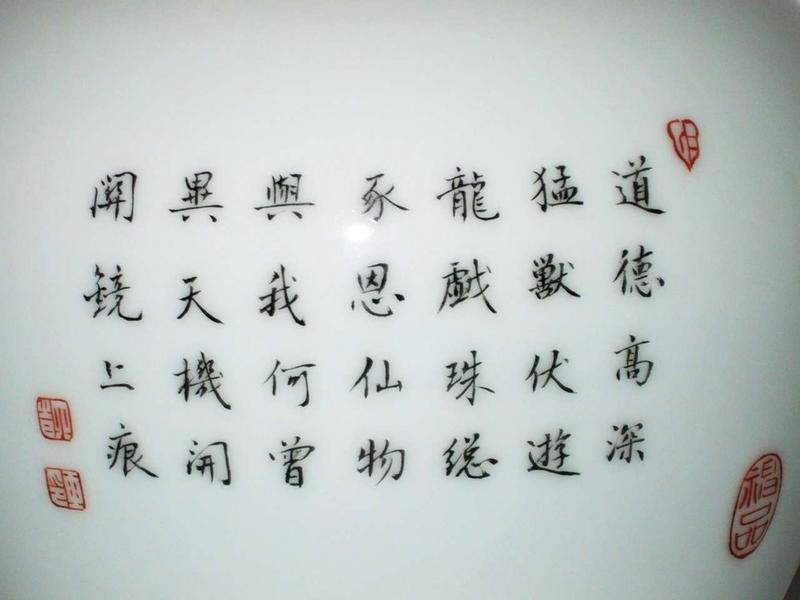 道德高深
猛獸伏遊
龍戲珠総
承恩仙物
與我何曾
異天機開
鏡上痕